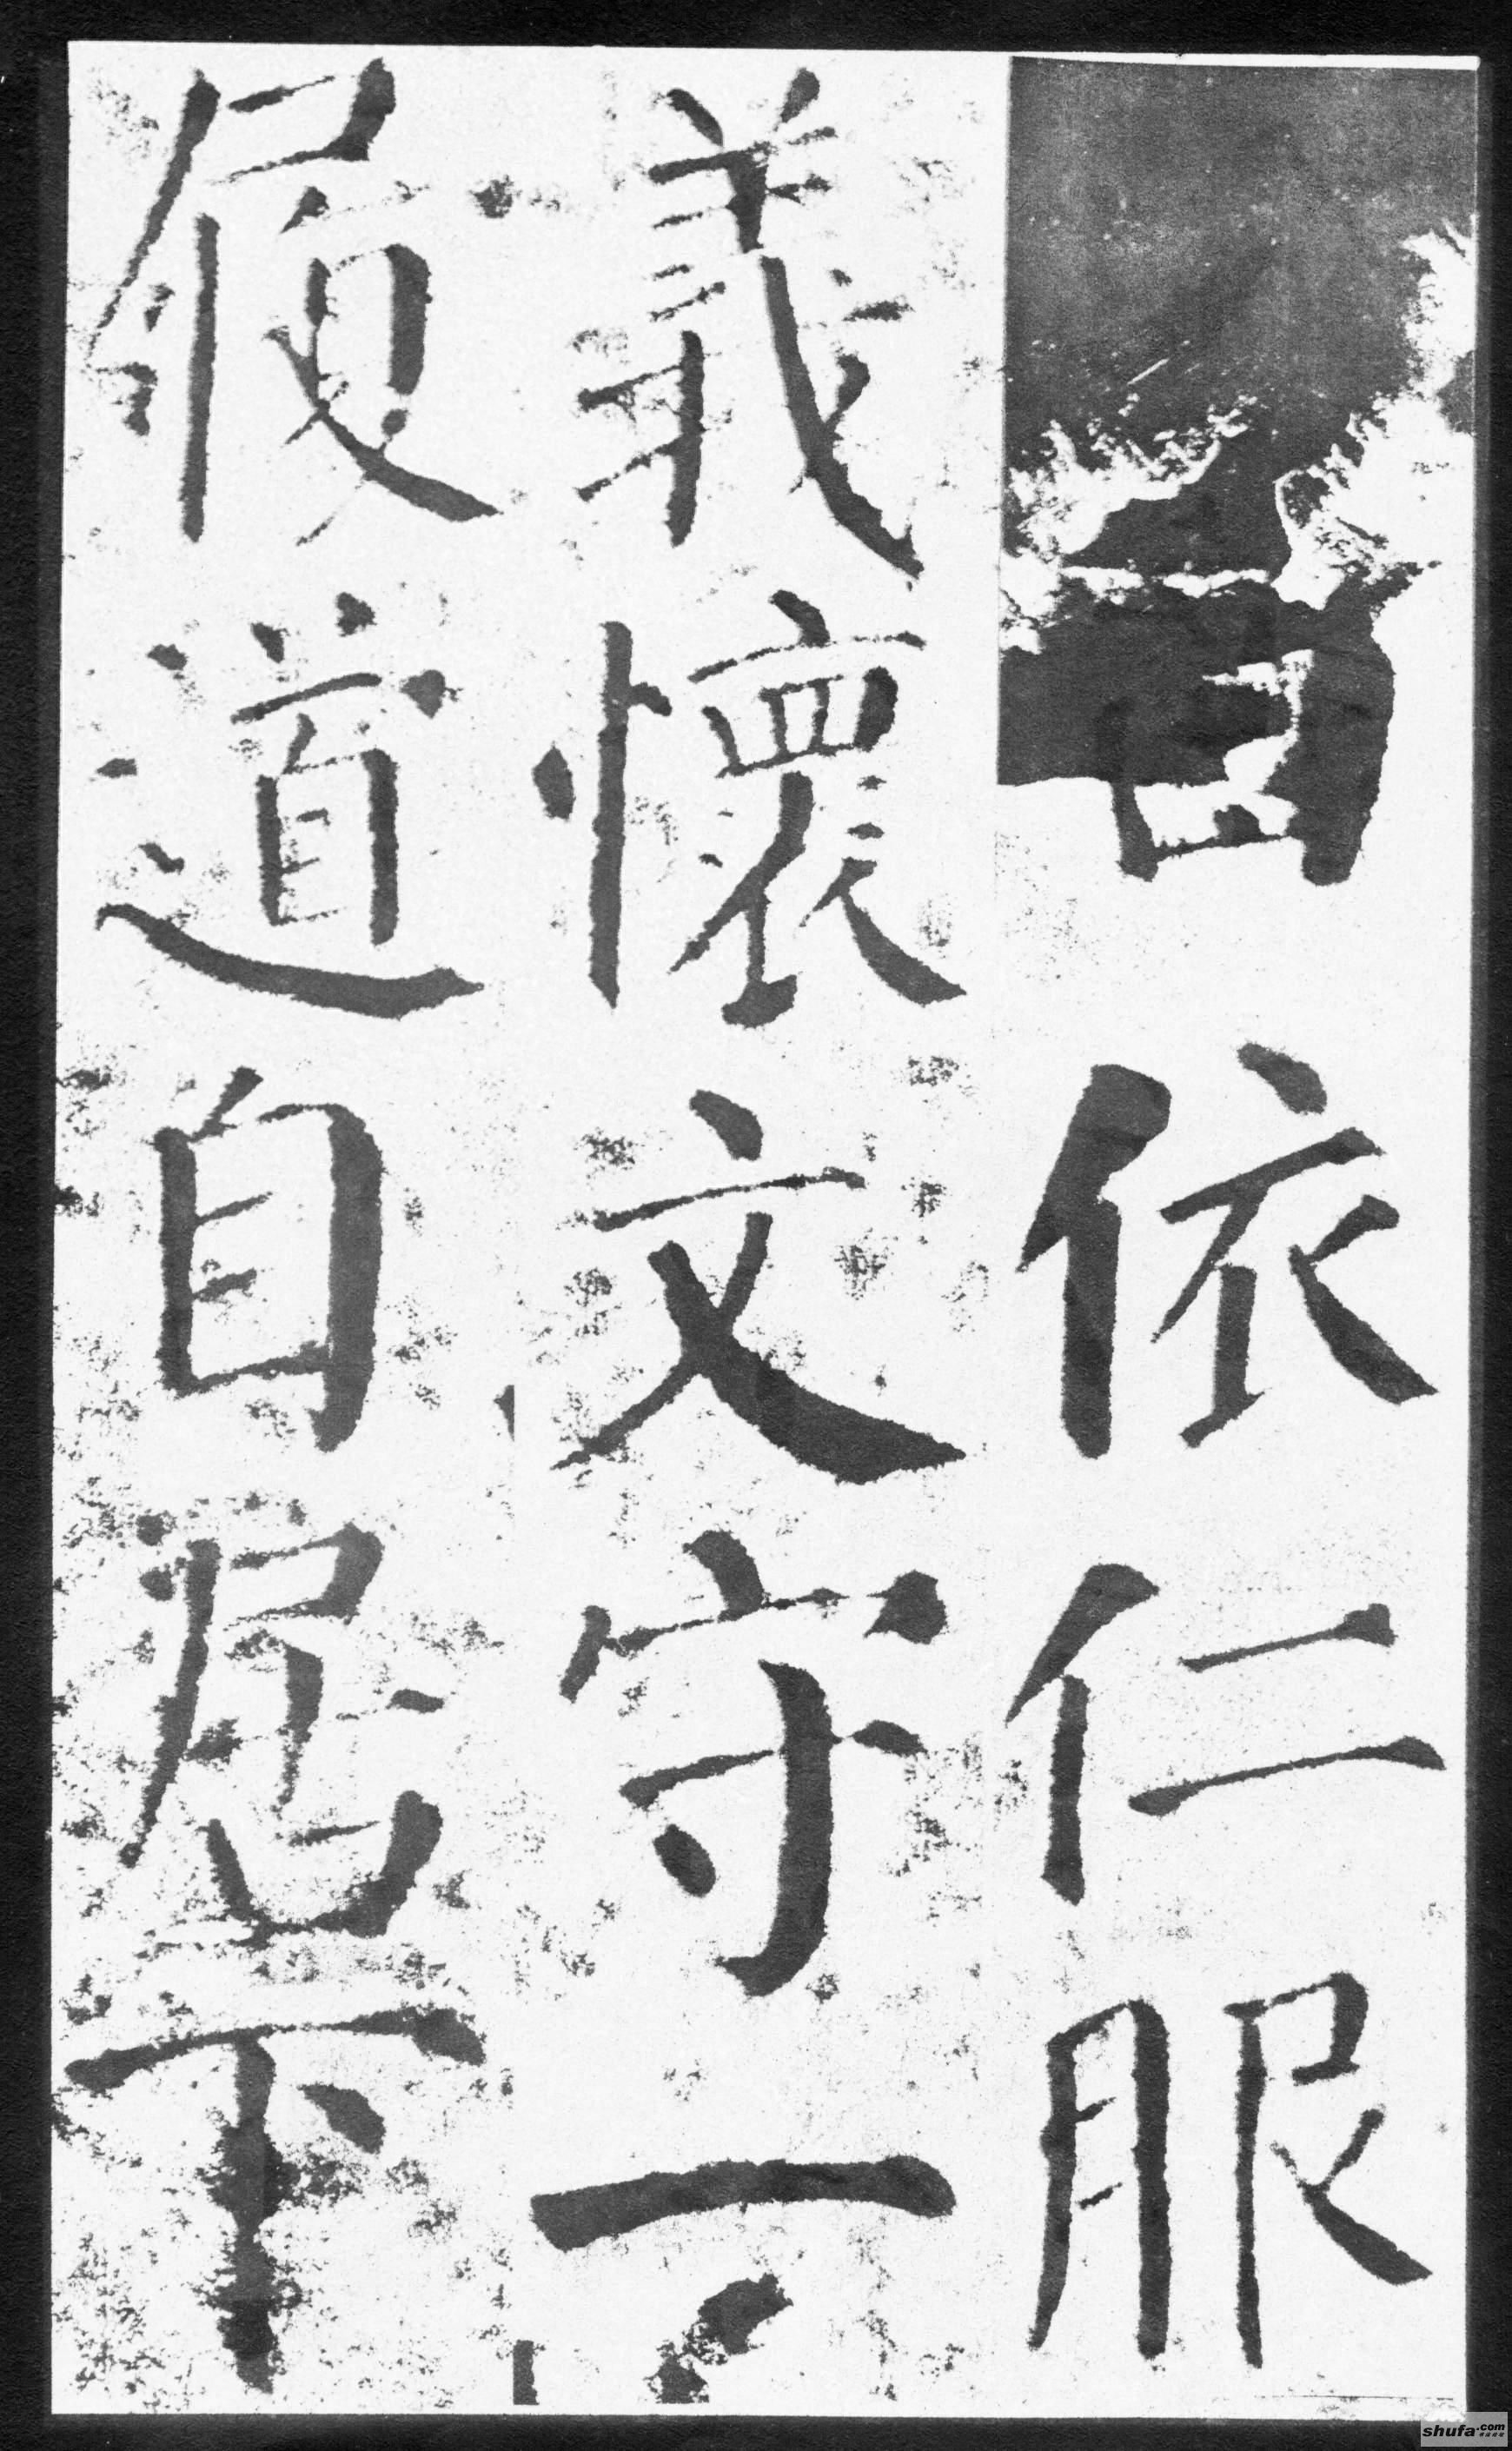 依仁服
義懷文守一
履道自居下
shufa.com